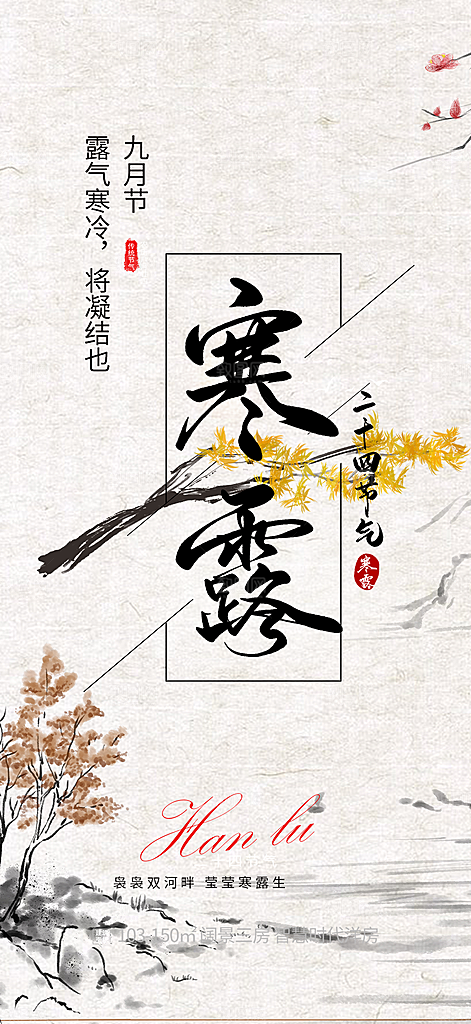 九月节
露气寒冷，将凝结也
传统节气
寒露
二十四节气
寒露
Han lu
袅袅双河畔 莹莹寒露生
建面103-150㎡阔景三房 智慧时代学房